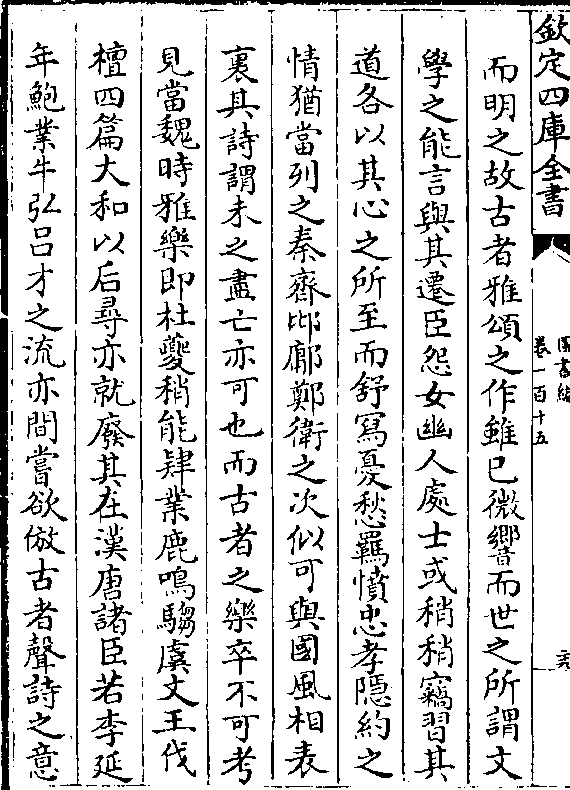 欽定四庫全書
圖書編
卷一百十五
二六
而明之故古者雅頌之作雖已微響而世之所謂文
學之能言與其遷臣怨女幽人處士或稍稍竊習其
道各以其心之所至而舒寫憂愁羈憤忠孝隱約之
情猶當列之秦齊邶鄘鄭衛之次似可與國風相表
裏其詩謂未之盡亡亦可也而古者之樂卒不可考
見當魏時雅樂即杜夔稍能肄業鹿鳴騶虞文王伐
檀四篇大和以后尋亦就廢其在漢唐諸臣若李延
年鮑業牛弘吕才之流亦間嘗欲倣古者聲詩之意